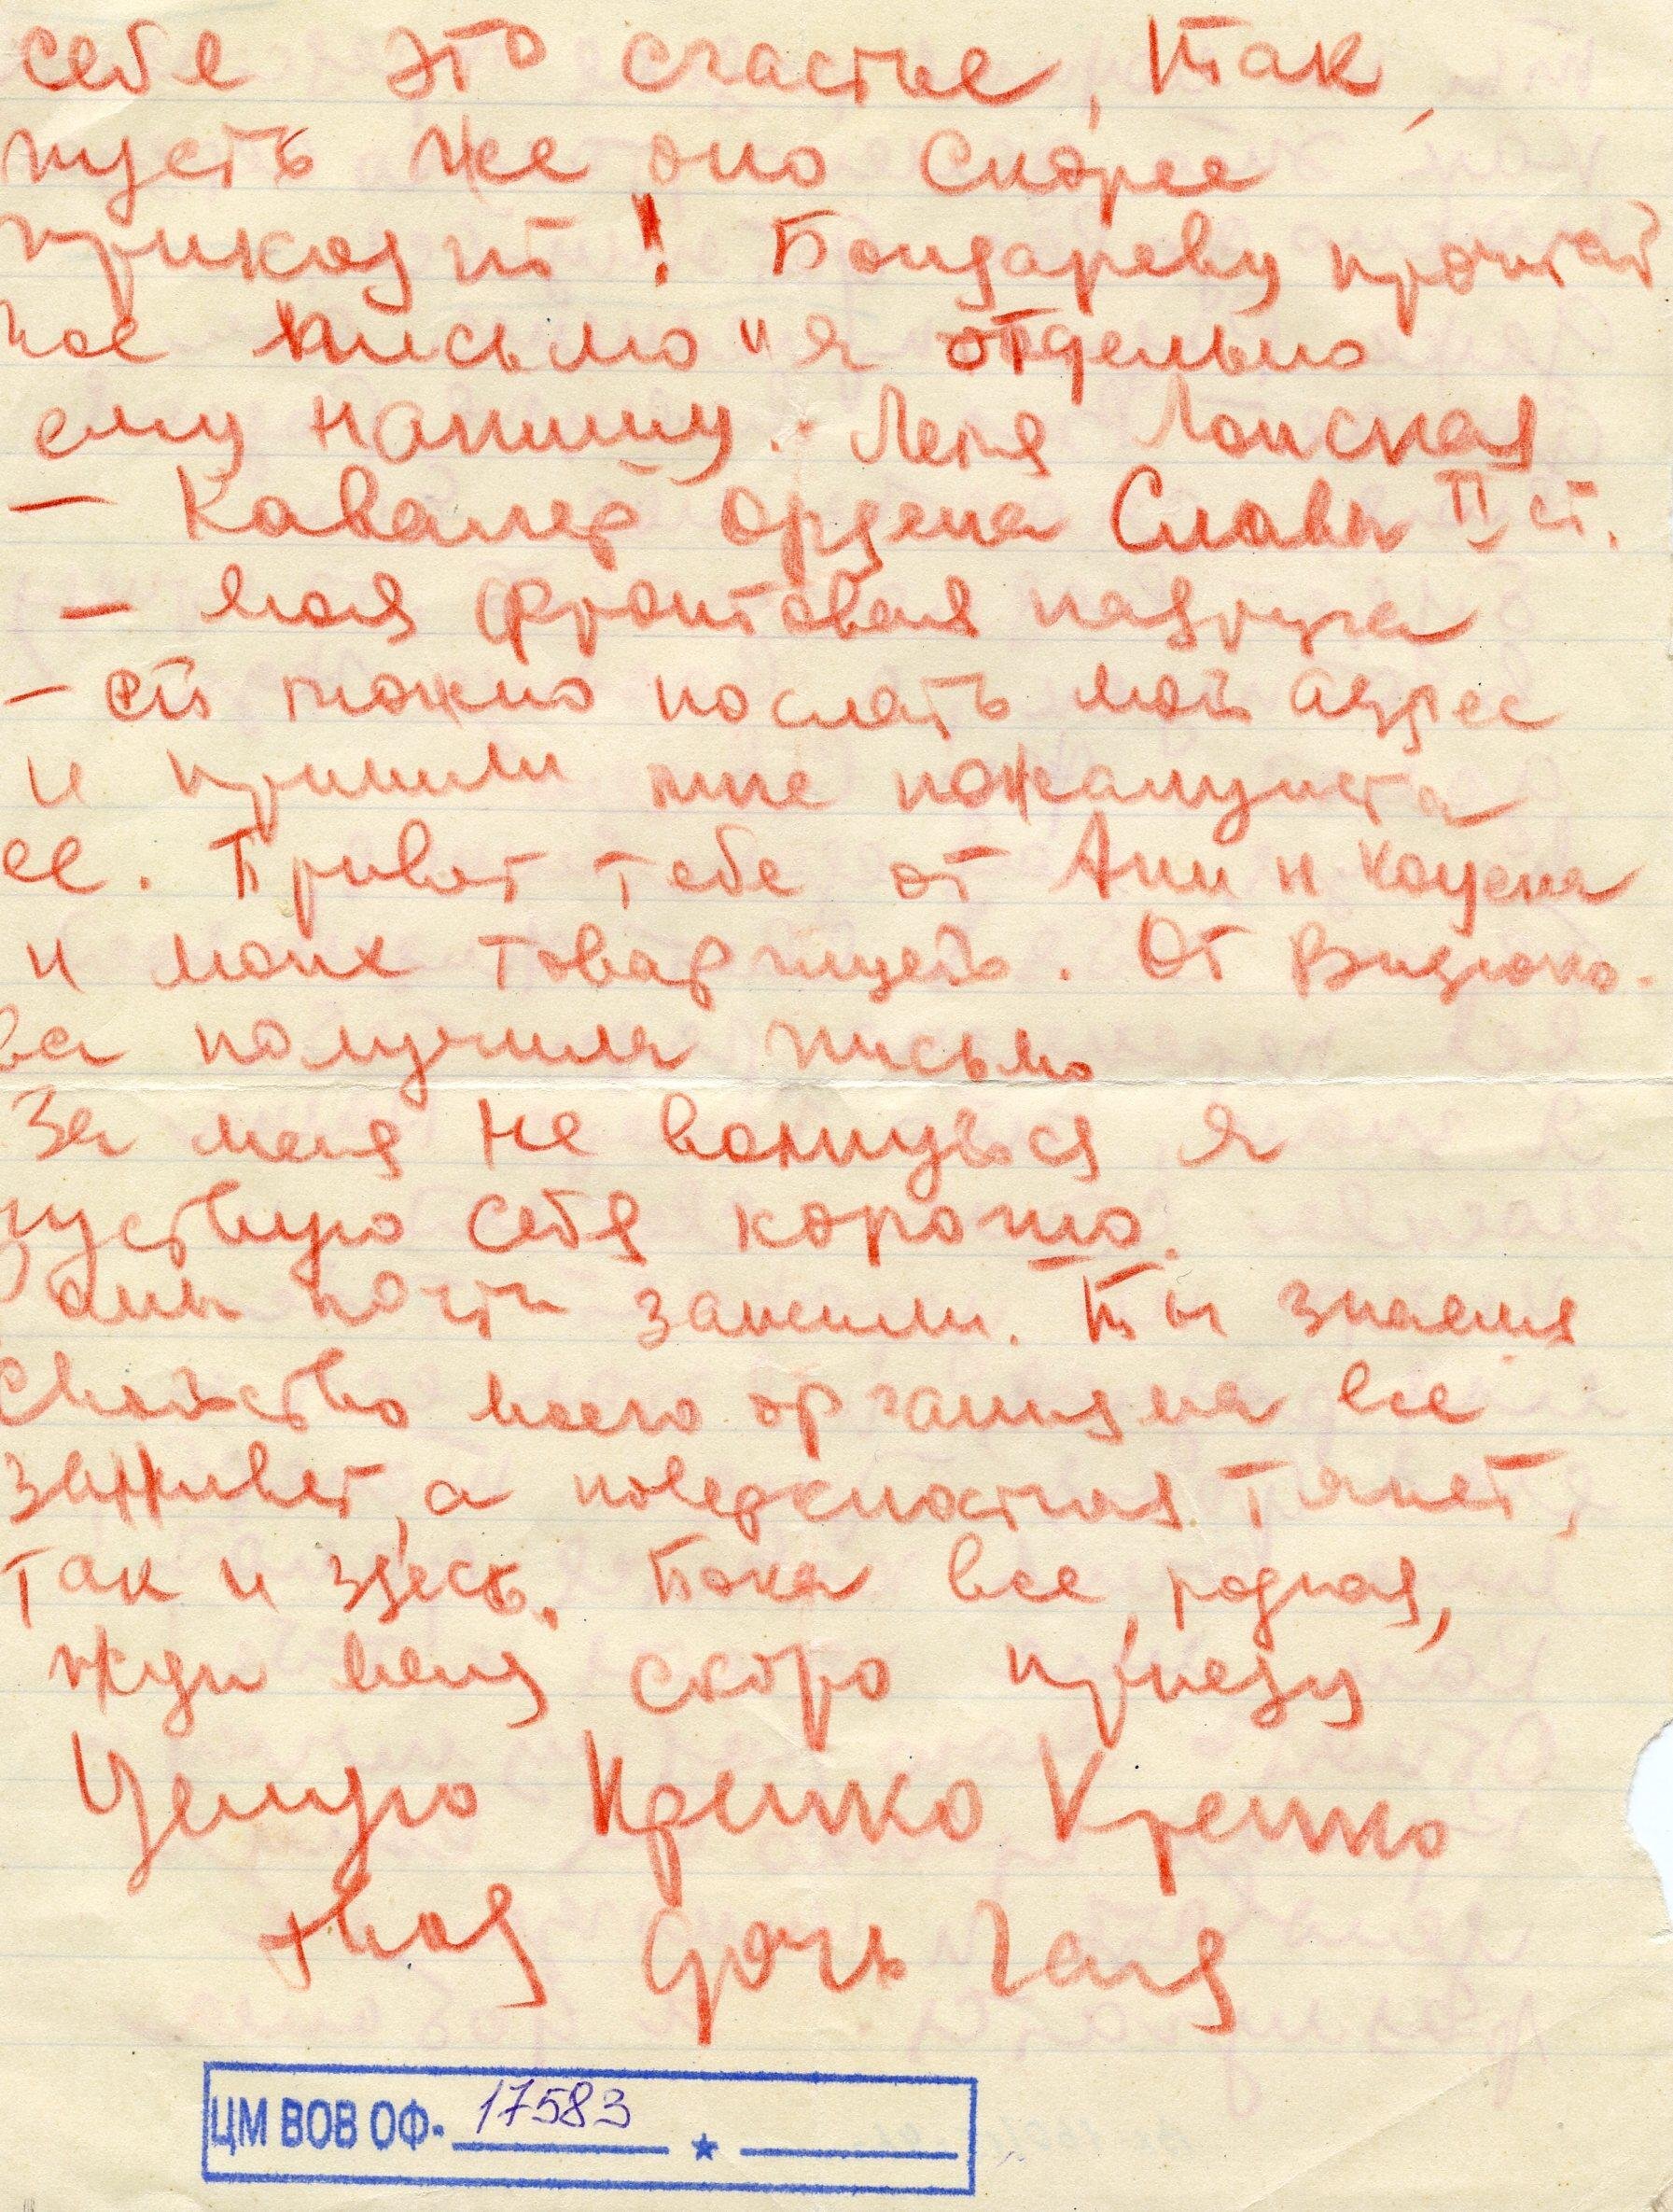 себе это счастье, так
пусть же оно скорее
приходит! Бондареву прочитай
мое письмо и я отдельно
ему напишу. Леля
– Кавалер ордена Славы II ст.
– моя фронтовая подруга
– ей можно послать мой адрес
и пришли мне пожалуйста
ее. Привет тебе от Ани и
и моих товарищей. От
ва получила письмо
За меня не волнуйся я
чуствую себя хорошо.
Раны почти зажили. Ты знаешь
свойство моего организма все
заживет, а поверхностная тянет,
так и здесь. Пока все, родная,
жди меня скоро приеду
Целую Крепко Крепко
твоя дочь Галя
ЦМ ВОВ ОФ- 17583 ★